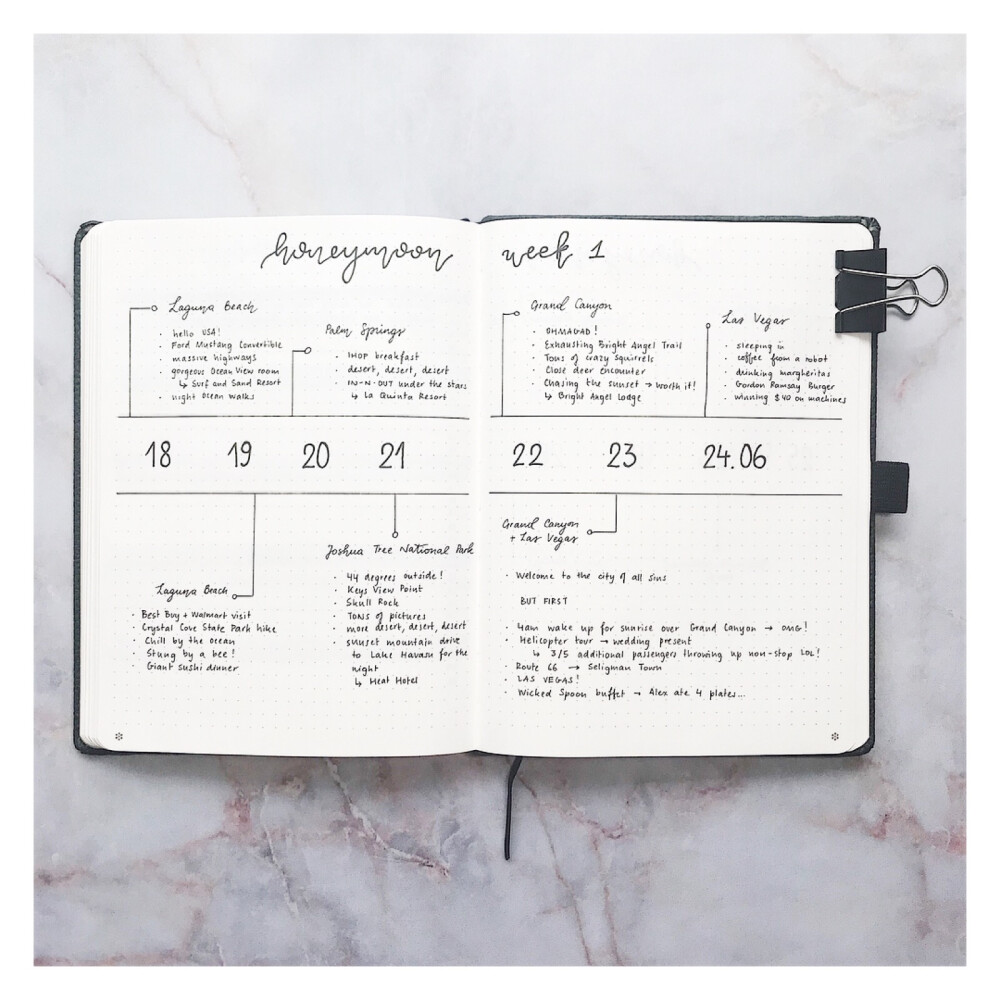 honeymoon week 1
Laguna Beach
· hello USA!
· Ford Mustang Convertible
· massive highways
· gorgeous Ocean View room
↳ Surf and Sand Resort
· night ocean walks
Palm Springs
· IHOP breakfast
· desert, desert, desert
· IN-N-OUT under the stars
↳ La Quinta Resort
18 19 20 21
Laguna Beach
· Best Buy + Walmart visit
· Crystal Cove State Park hike
· Chill by the ocean
· Stung by a bee!
· Giant sushi dinner
Joshua Tree National Park
· 44 degrees outside!
· Keys View Point
· Skull Rock
· Tons of pictures
· more desert, desert, desert
· sunset mountain drive
to Lake Havasu for the
night
↳ Heat Hotel
Grand Canyon
· OHMAGAD!
· Exhausting Bright Angel Trail
· Tons of crazy squirrels
· Close deer encounter
· Chasing the sunset → worth it!
↳ Bright Angel Lodge
Las Vegas
· sleeping in
· coffee from a robot
· drinking margheritas
· Gordon Ramsay Burger
· winning $40 on machines
22 23 24.06
Grand Canyon
+ Las Vegas
· Welcome to the city of all sins
BUT FIRST
· 4am wake up for sunrise over Grand Canyon → OMG!
· Helicopter tour → wedding present
↳ 3/5 additional passengers throwing up non-stop LOL!
· Route 66 → Seligman Town
· LAS VEGAS!
· Wicked Spoon buffet → Alex ate 4 plates...